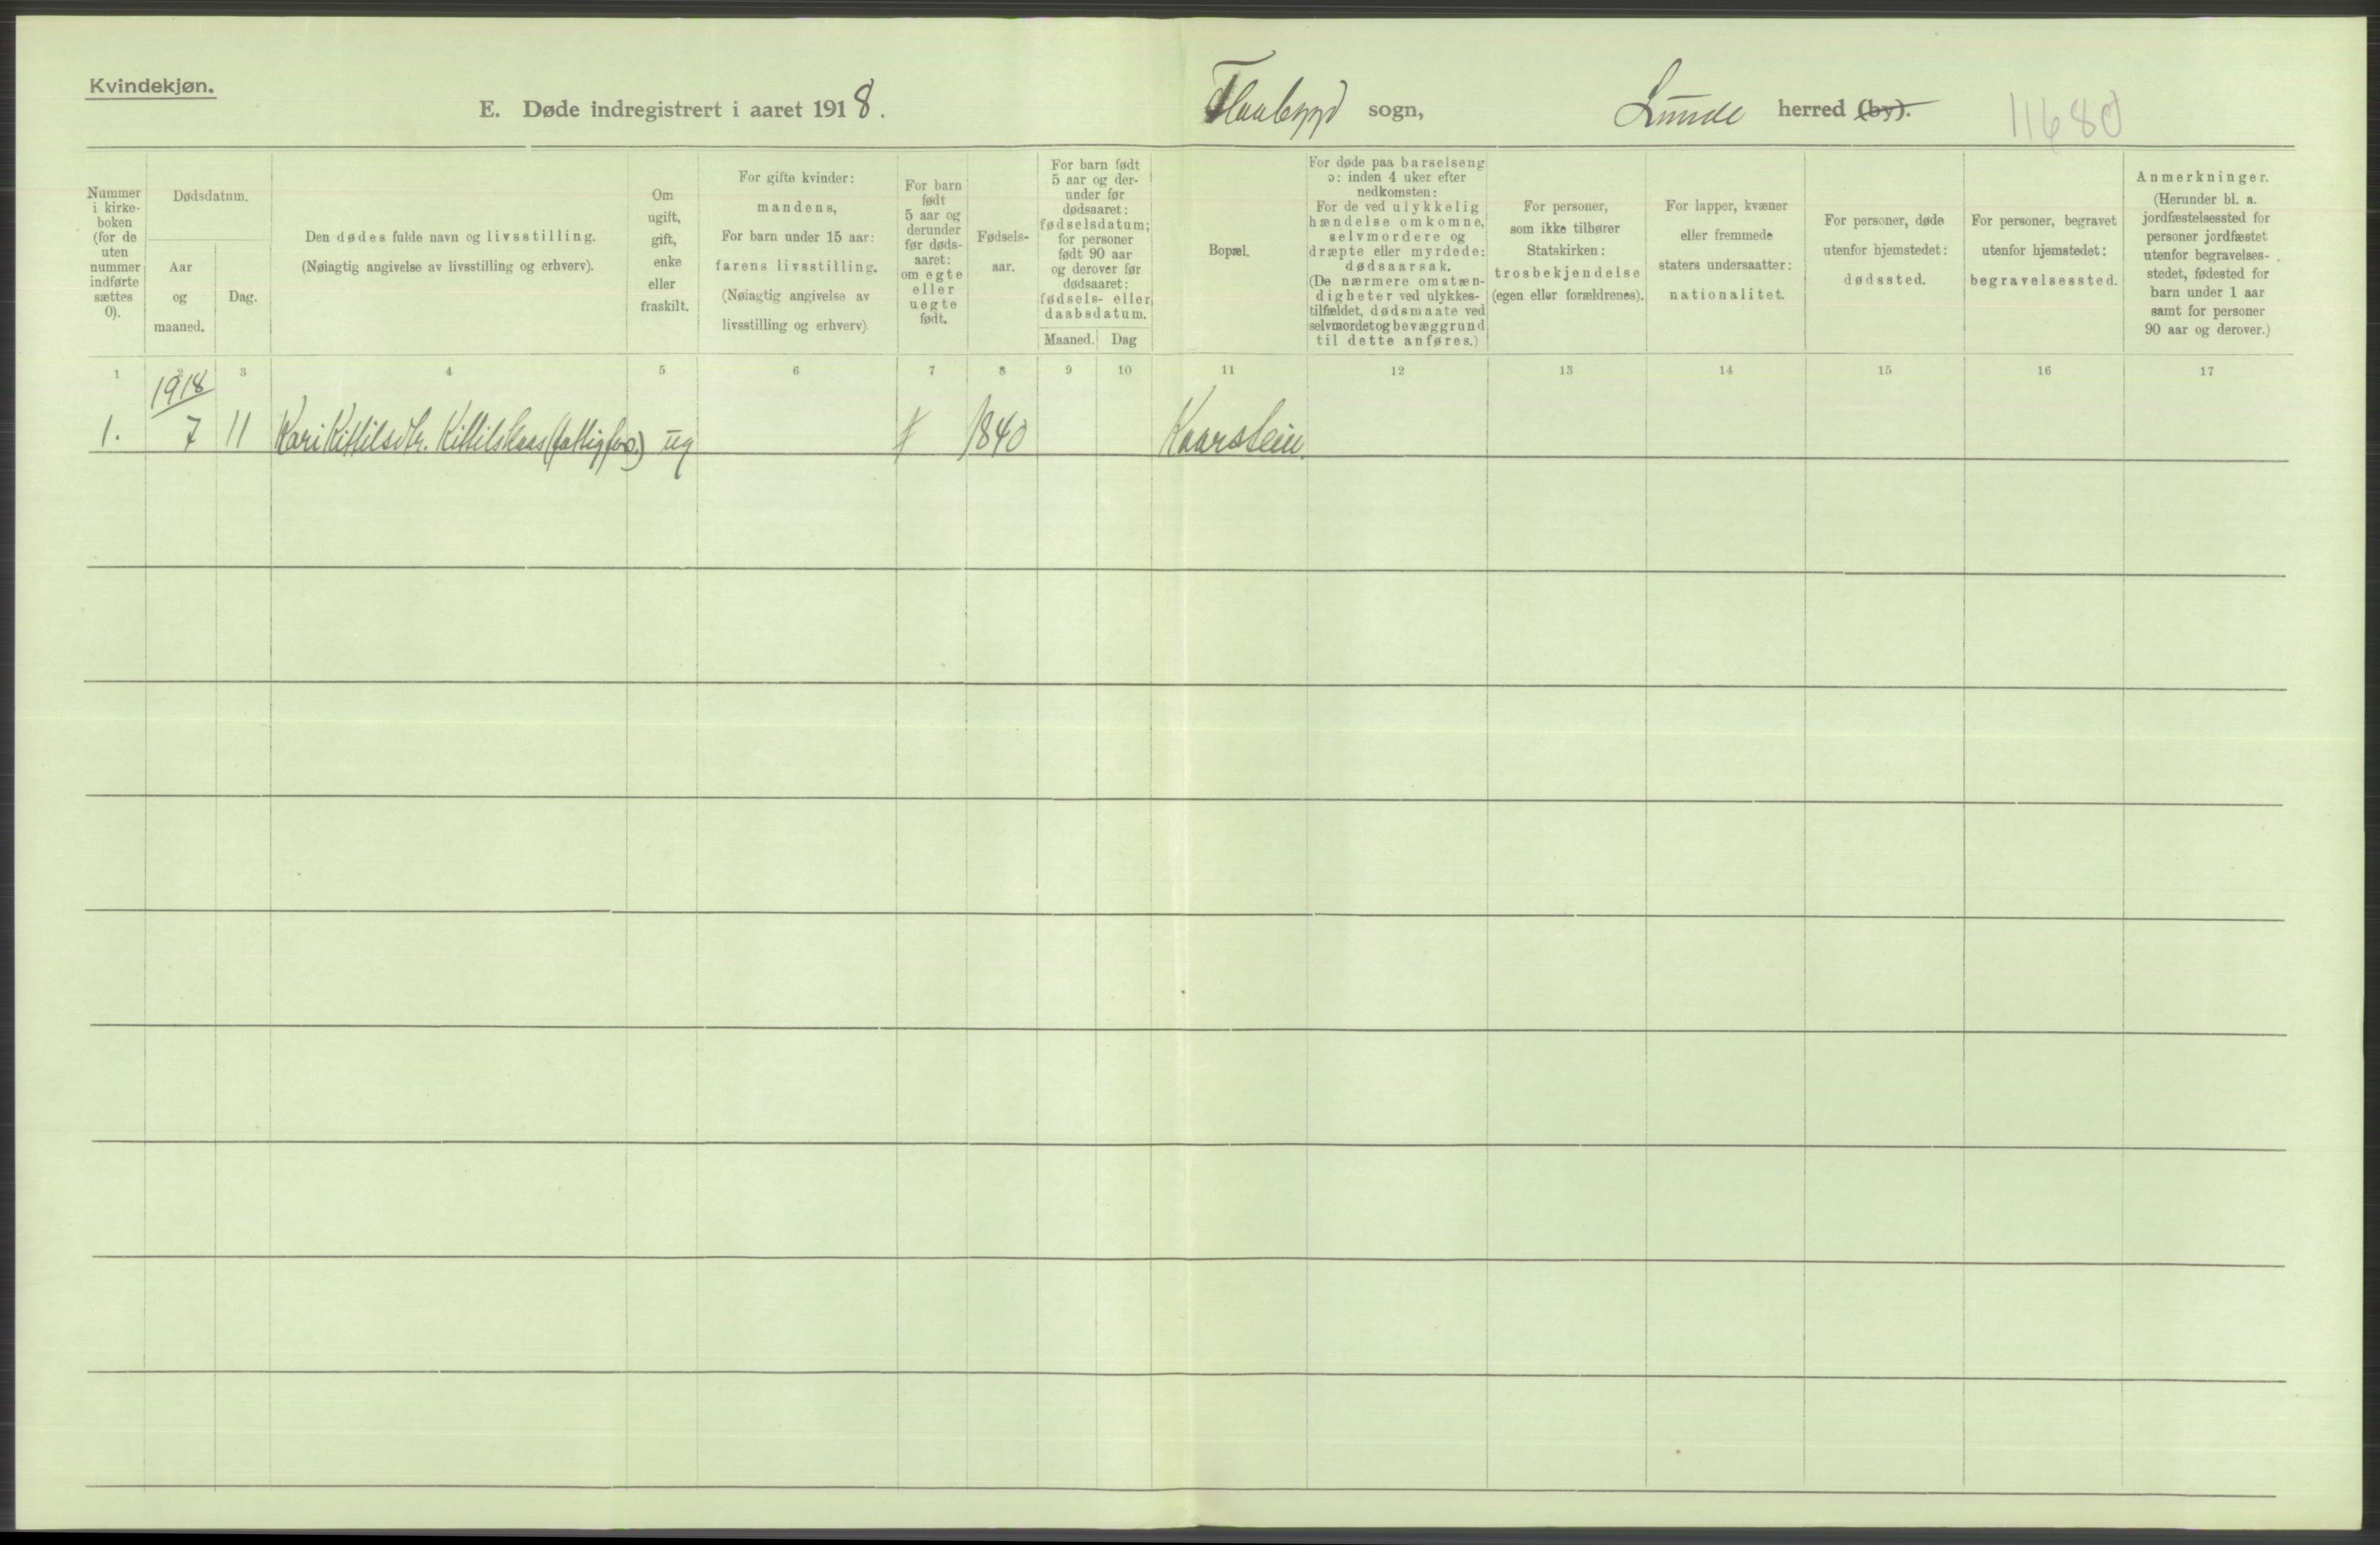 Kvindekjøn.
E. Døde indregistrert i aaret 1918.
Flaabygd sogn,
Lunde herred (by).
11680
Nummer
i kirke-
boken
(for de
uten
nummer
indførte
sættes
0).
Dødsdatum.
Aar
og
maaned.
Dag.
Den dødes fulde navn og livsstilling.
(Nøiagtig angivelse av livsstilling og erhverv).
Om
ugift,
gift,
enke
eller
fraskilt.
For gifte kvinder:
mandens,
For barn under 15 aar:
farens livsstilling.
(Nøiagtig angivelse av
livsstilling og erhverv)
For barn
født
5 aar og
derunder
før døds-
aaret:
om egte
eller
uegte
født.
Fødsels-
aar.
For barn født
5 aar og der-
under før
dødsaaret:
fødselsdatum;
for personer
født 90 aar
og derover før
dødsaaret:
fødsels- eller
daabsdatum.
Maaned.
Dag
Bopæl.
For døde paa barselseng
ɔ: inden 4 uker efter
nedkomsten:
For de ved ulykkelig
hændelse omkomne,
selvmordere og
dræpte eller myrdede:
dødsaarsak.
(De nærmere omstæn-
digheter ved ulykkes-
tilfældet, dødsmaate ved
selvmordet og bevæggrund
til dette anføres.)
For personer,
som ikke tilhører
Statskirken:
trosbekjendelse
(egen eller forældrenes).
For lapper, kvæner
eller fremmede
staters undersaatter:
nationalitet.
For personer, døde
utenfor hjemstedet:
dødssted.
For personer, begravet
utenfor hjemstedet:
begravelsessted.
Anmerkninger.
(Herunder bl. a.
jordfæstelsessted for
personer jordfæstet
utenfor begravelses-
stedet, fødested for
barn under 1 aar
samt for personer
90 aar og derover.)
1 2 3 4 5 6 7 8 9 10 11 12 13 14 15 16 17
1918
1. 7 11 Kari Kittilsdtr. Kittilskaas (fattigfors.) ug 1840 Kaarstein.